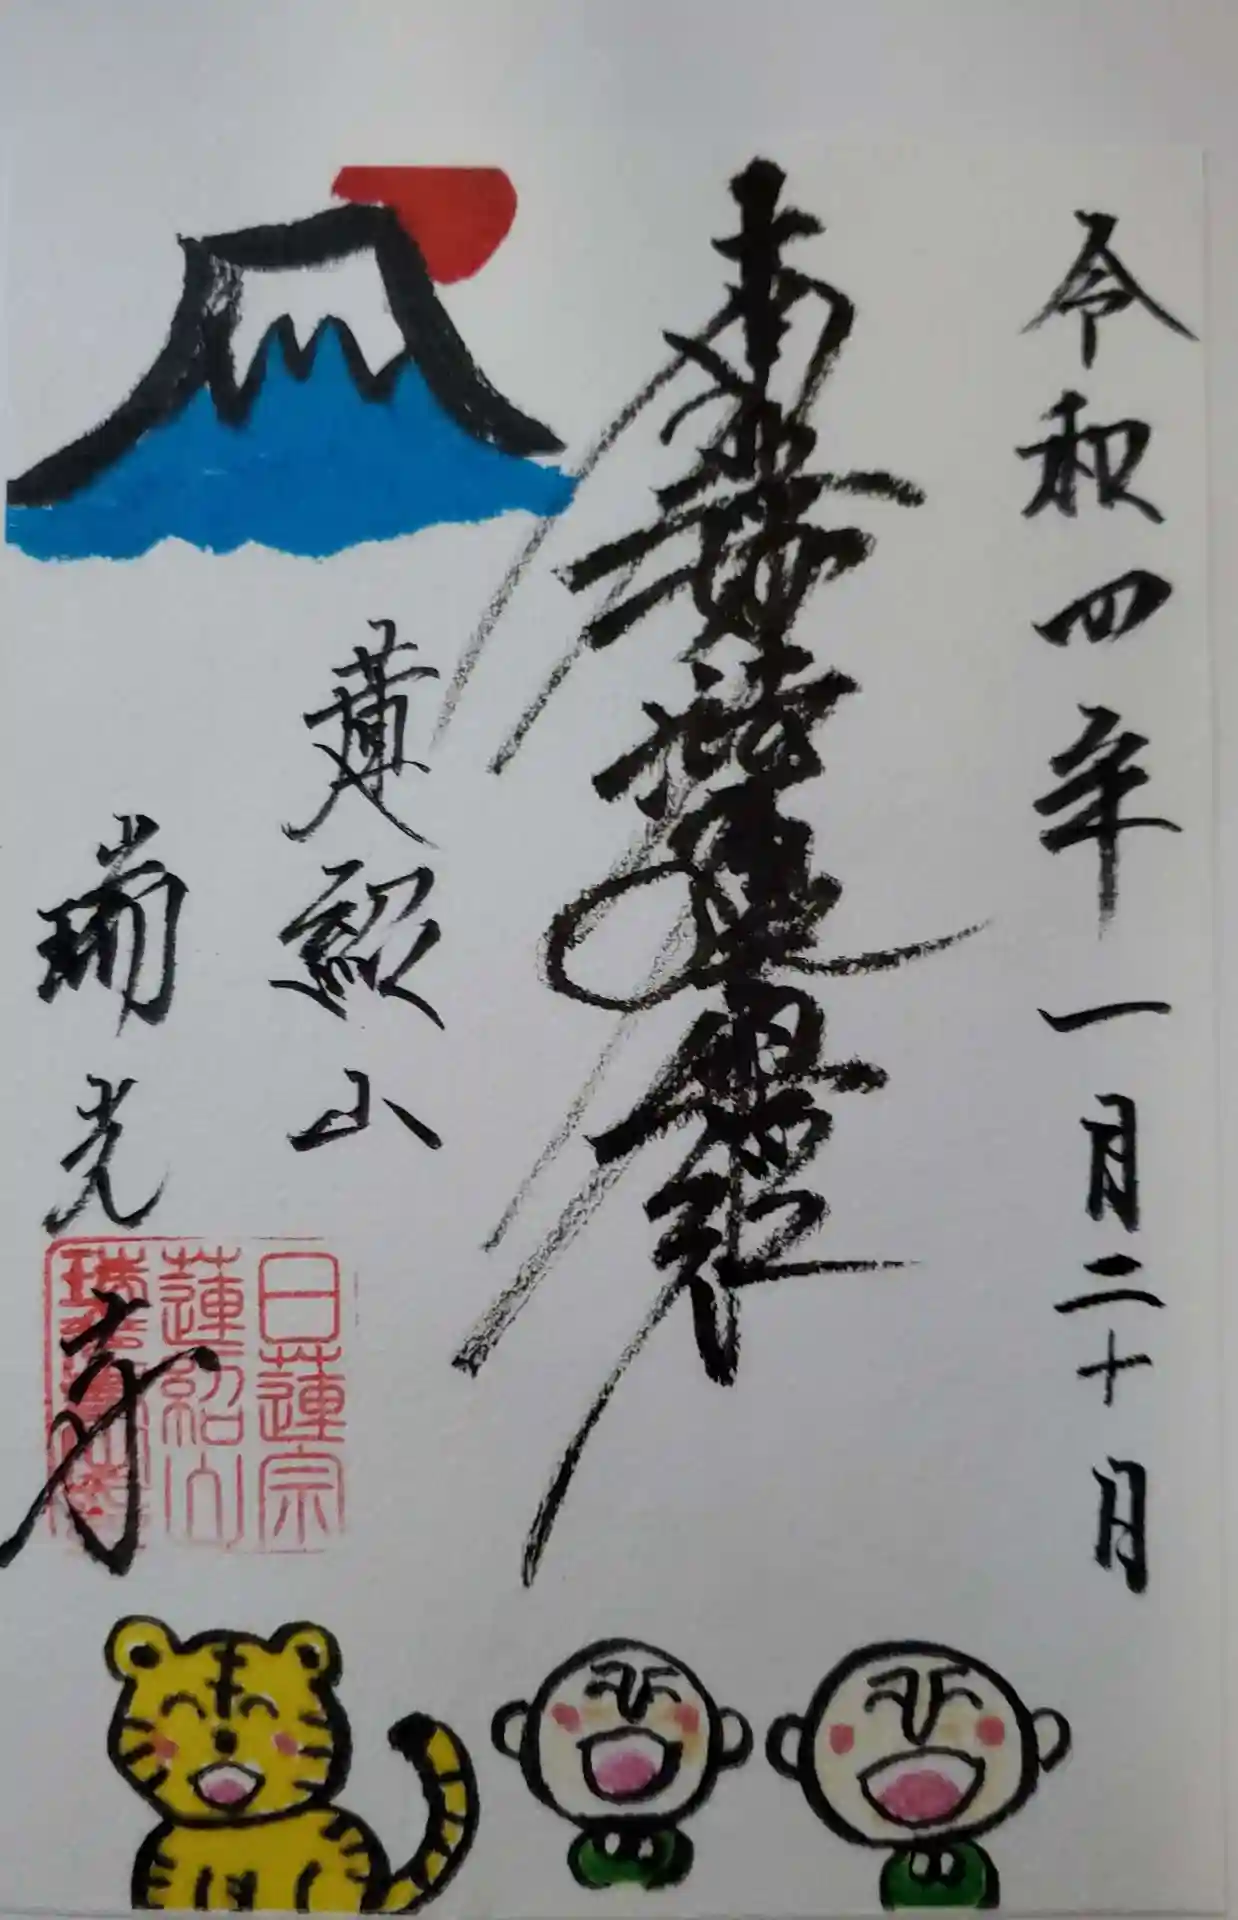 令和四年一月二十日
南無妙法蓮華経
蓮紹山
瑞光寺
日蓮宗
蓮紹山
瑞光